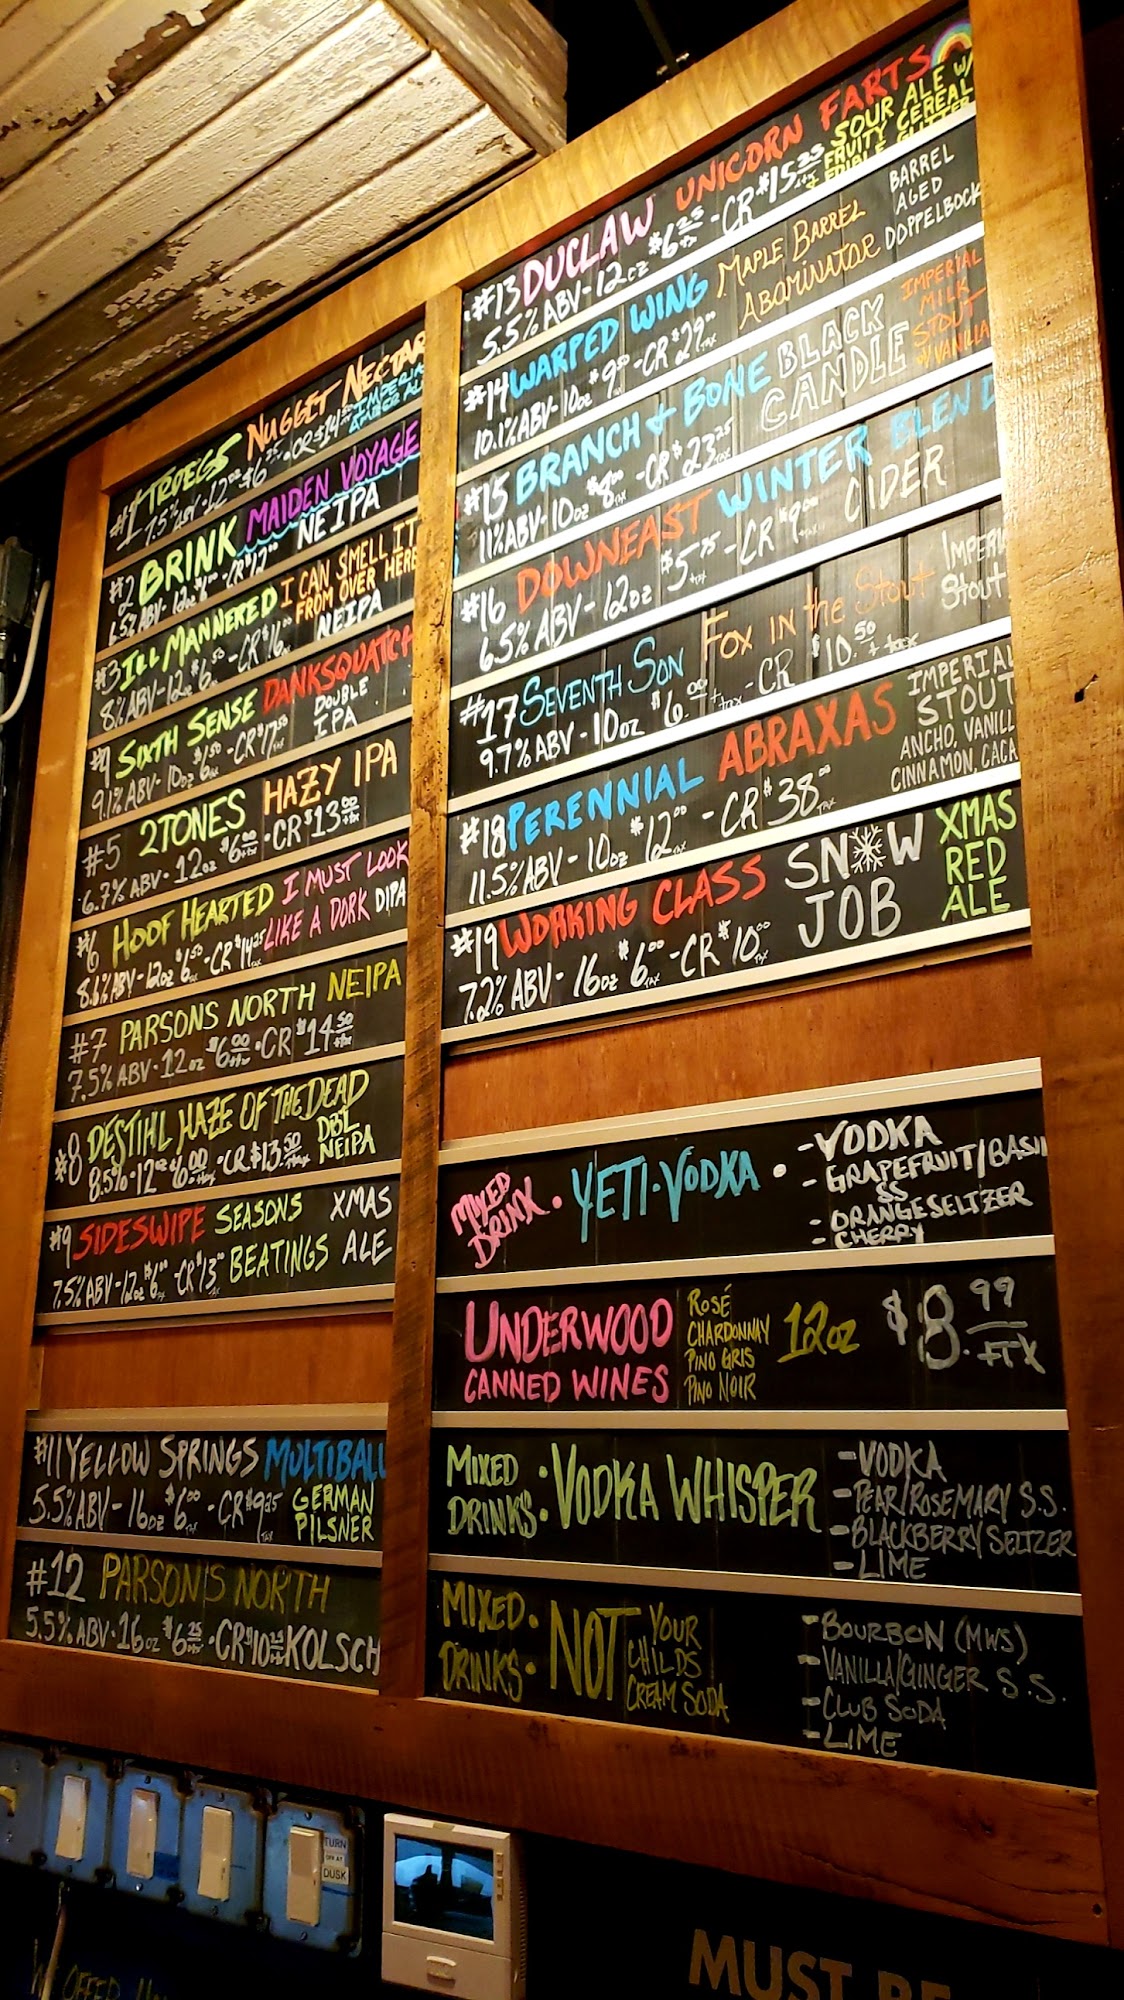 #1 TRÖEGS NUGGET NECTAR
7.5% ABV - 12oz $6.25 - CR $14 IMPERIAL AMBER ALE
#2 BRINK MAIDEN VOYAGE
6.5% ABV - 12oz - CR $12 NEIPA
#3 ILL MANNERED I CAN SMELL IT FROM OVER HERE
8% ABV - 12oz $6.50 - CR $16 NEIPA
SIXTH SENSE DANKSQUATCH
9.1% ABV - 10oz $6.50 TAX - CR $17.50 DOUBLE IPA
#5 2TONES HAZY IPA
6.7% ABV - 12oz $6.00 +TAX - CR $13.00 +TAX
#6 HOOF HEARTED I MUST LOOK LIKE A DORK DIPA
8.6% ABV - 12oz $6.50 TAX - CR $14.25
#7 PARSONS NORTH NEIPA
7.5% ABV - 12oz $6.00 +TAX - CR $14.50 +TAX
#8 DESTIHL HAZE OF THE DEAD
8.5% - 12oz 6.00 +TAX - CR $13.50 +TAX DBL NEIPA
#9 SIDESWIPE SEASONS BEATINGS XMAS ALE
7.5% ABV - 12oz $6.00 - CR $13
#11 YELLOW SPRINGS MULTIBALL
5.5% ABV - 16oz $6.00 TAX - CR $9.25 TAX GERMAN PILSNER
#12 PARSON'S NORTH
5.5% ABV - 16oz $6.25 +TAX - CR $10.25 KOLSCH
#13 DUCLAW UNICORN FARTS
5.5% ABV - 12oz $6.25 +TX - CR $15.25 +TX SOUR ALE W/ FRUITY CEREAL + EDIBLE GLITTER
#14 WARPED WING MAPLE BARREL ABOMINATOR
10.1% ABV - 10oz $9.50 - CR $29.00 TAX BARREL AGED DOPPELBOCK
#15 BRANCH & BONE BLACK CANDLE
11% ABV - 10oz $8.00 TAX - CR $23.25 TAX IMPERIAL MILK STOUT W/ VANILLA
#16 DOWNEAST WINTER BLEND
6.5% ABV - 12oz $5.75 +TX - CR $9.00 TAX CIDER
#17 SEVENTH SON Fox in the Stout
9.7% ABV - 10oz $6.00 +TAX - CR $10.50 + TAX Imperial Stout
#18 PERENNIAL ABRAXAS
11.5% ABV - 10oz $12.00 TAX - CR $38.00 TAX IMPERIAL STOUT ANCHO, VANILL CINNAMON, CACA
#19 WORKING CLASS SNOW JOB
7.2% ABV - 16oz $6.00 TAX - CR $10.00 TX XMAS RED ALE
MIXED DRINX • YETI • VODKA •
- VODKA
- GRAPEFRUIT/BASIL SS
- ORANGE SELTZER
- CHERRY
UNDERWOOD CANNED WINES
ROSÉ
CHARDONNAY
PINO GRIS
PINO NOIR
12oz $8.99 +TX
MIXED DRINKS: VODKA WHISPER
- VODKA
- PEAR/ROSEMARY S.S.
- BLACKBERRY SELTZER
- LIME
MIXED DRINKS: NOT YOUR CHILDS CREAM SODA
- BOURBON (MWS)
- VANILLA/GINGER S.S.
- CLUB SODA
- LIME
TURN
OFF AT
DUSK
WE OFFER
MUST BE